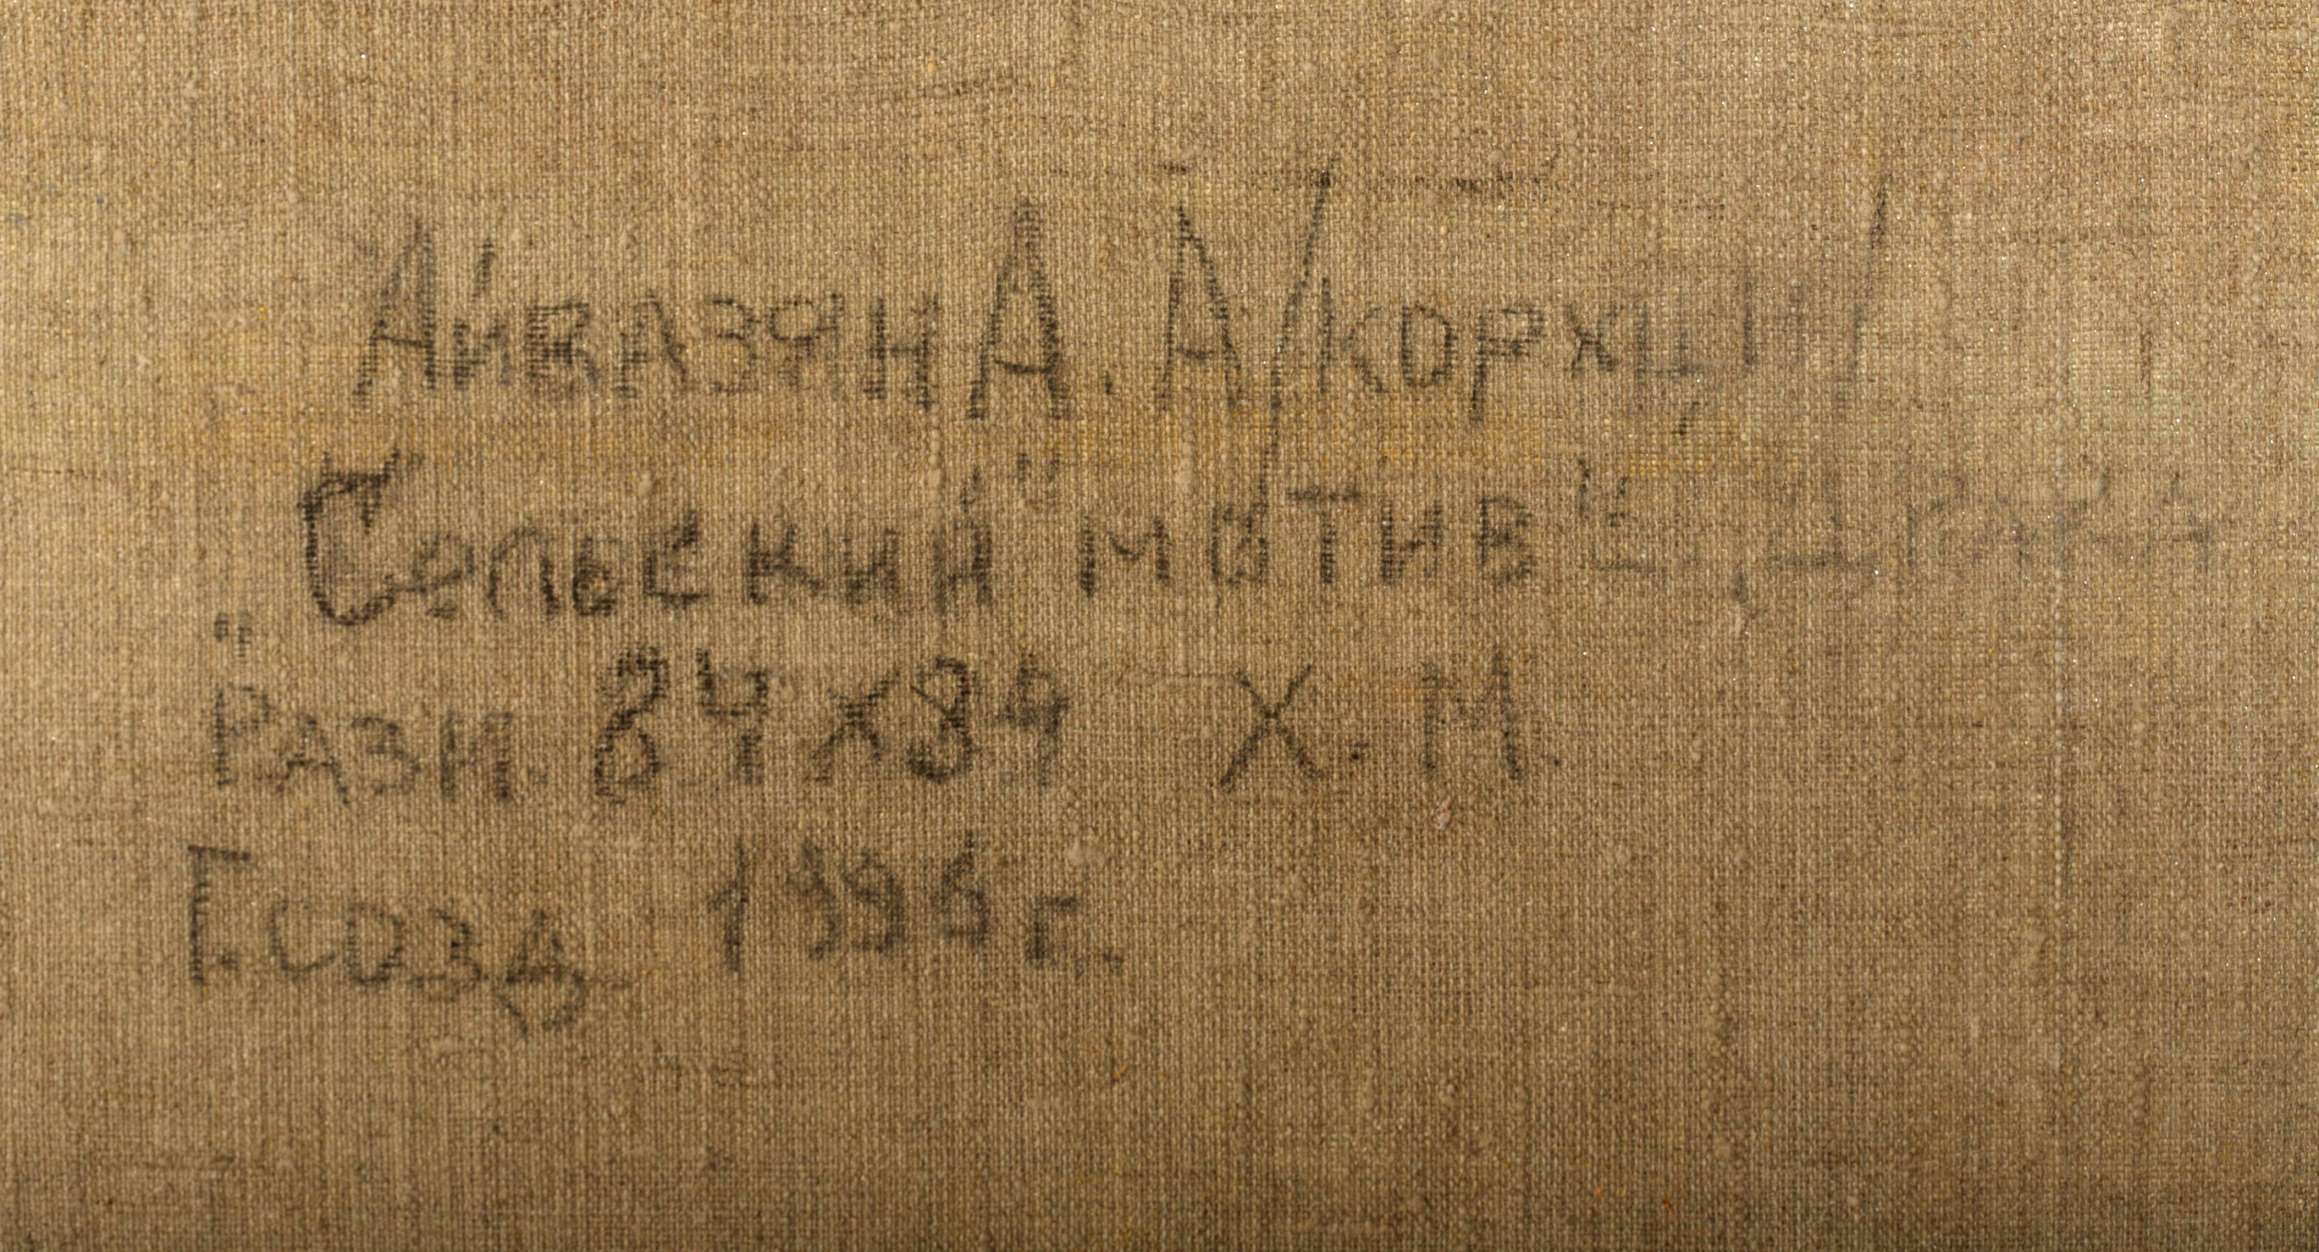 Айвазян А. А /корхци/
"Сельский мотив"
Разм. 84х84 Х. М.
Г. созд. 1996 г.